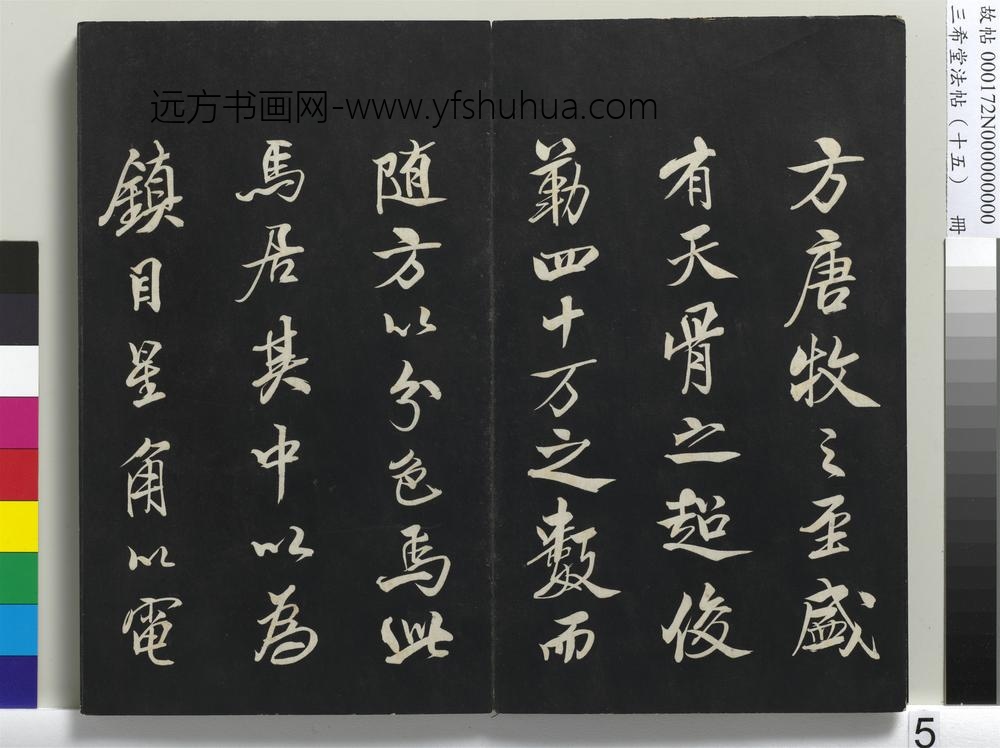 故帖000172N000000000
三希堂法帖（十五） 冊
远方书画网-www.yfshuhua.com
方唐牧之至盛
有天骨之超俊
勒四十万之數而
随方以分色焉此
馬居其中以為
鎮目星角以電
5